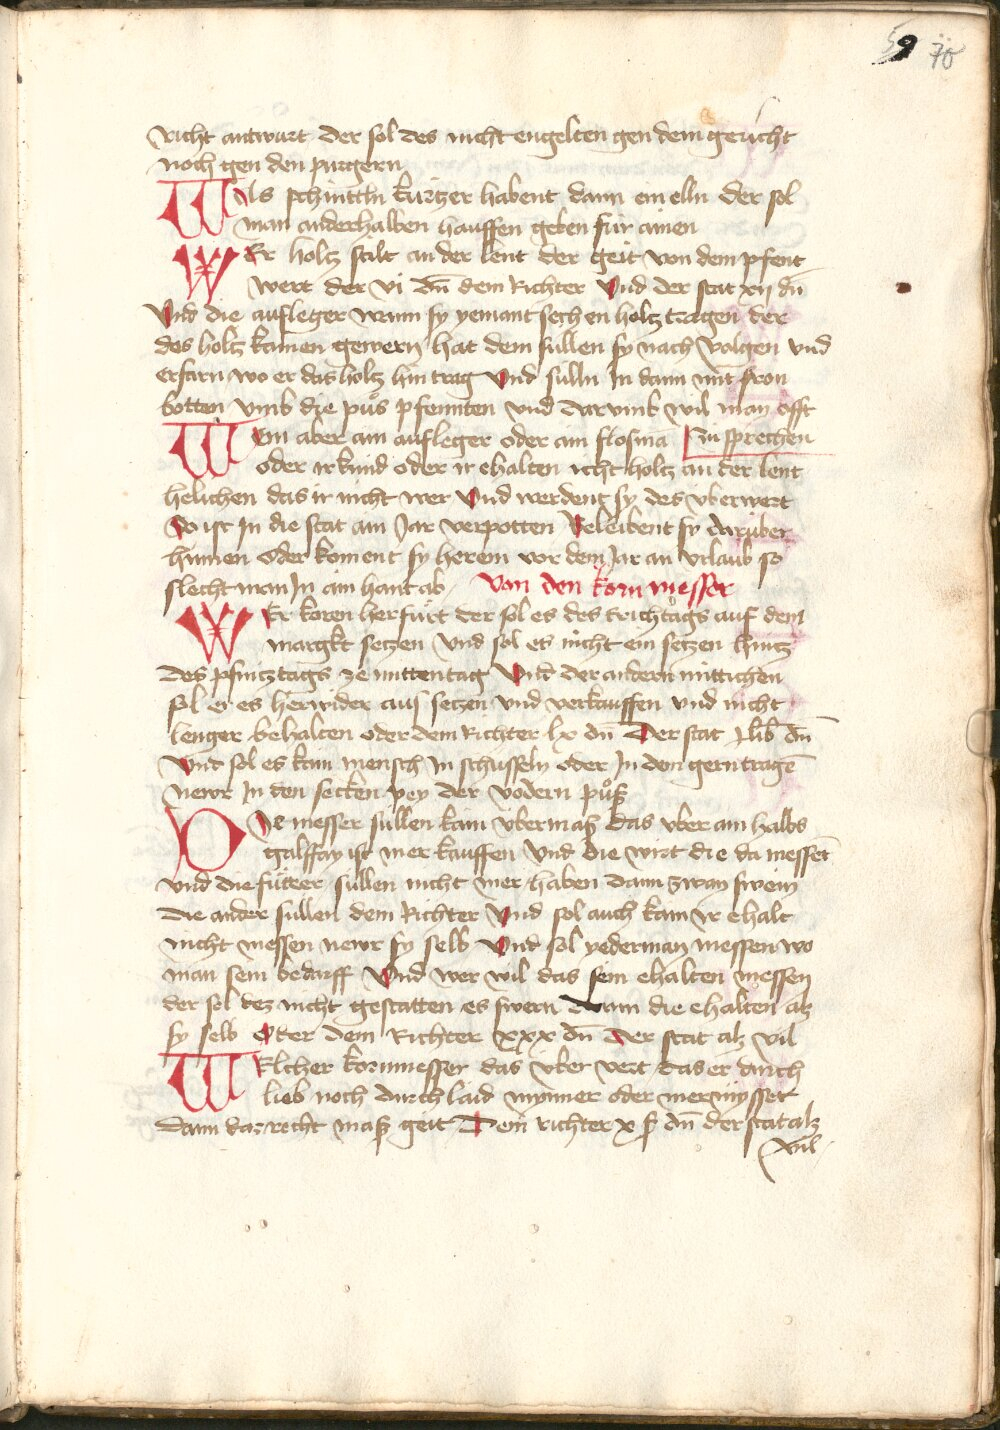 59 70
richt antwurt der sol des nicht engelten gen dem gericht
noch gen den purgern
Was schintln kurtzer habent dann ein elln der sol
man anderhalben hauffen geben für ainen
WEr holtz stilt an der lent der geit von dem pfent
wert der vi dn̄ dem Richter Vnd der stat xij dn̄
Vnd die aufleger wann sy yemant sechen holtz tragen der
des holtz kainen gewern hat dem sullen sy nach volgen vnd
erfarn wo er das holtz hin trag Vnd sulln In dann mit fron
botten vmb die pus pfennten vnd darumb wil man offt
Wem aber ain aufleger oder ain flosman zu sprechen
oder ir kind oder ir ehalten icht holtz an der lent
helichen das ir nicht wer Vnd werdent sy des vberwert
So ist In die stat ain Jar verpotten Beleibent sy daruber
hinnen oder koment sy herein vor dem Jar an vrlaub so
slecht man In ain hant ab Von den korn messer
WEr koren herfürt der sol es des Erichtags auf dem
margkt setzen Vnd sol es nicht ein setzen hintz
des pfintztags ze mittentag Vnd der andern mittichen
sol er es herwider aus setzen vnd verkauffen vnd nicht
lenger behalten oder dem Richter lx dn̄ Der stat j lib dn̄
Vnd sol es kain mensch In schusseln oder In den gern tragē
newr In den secken pey der vodern pus
DIe messer sullen kain vbermaß das vber ain halbs
galffay ist mer kauffen Vnd die wirt die da messent
vnd die fütrer sullen nicht mer haben dann zway swein
die ander sullen dem Richter Vnd sol auch kain ir ehalt
nicht messen newr sy selb Vnd sol yederman messen wo
man sein bedarff Vnd wer wil das sein ehalten messen
der sol dez nicht gestatten es swern dann die ehalten alz
sy selb Oder dem Richter xxx dn̄ Der stat alz vil
WElcher kornmesser das vber vert das er durch
lieb noch durch laid mynner oder mer mysset
dann daz recht maß geit Dem richter x ß dn̄ der stat alz
vil